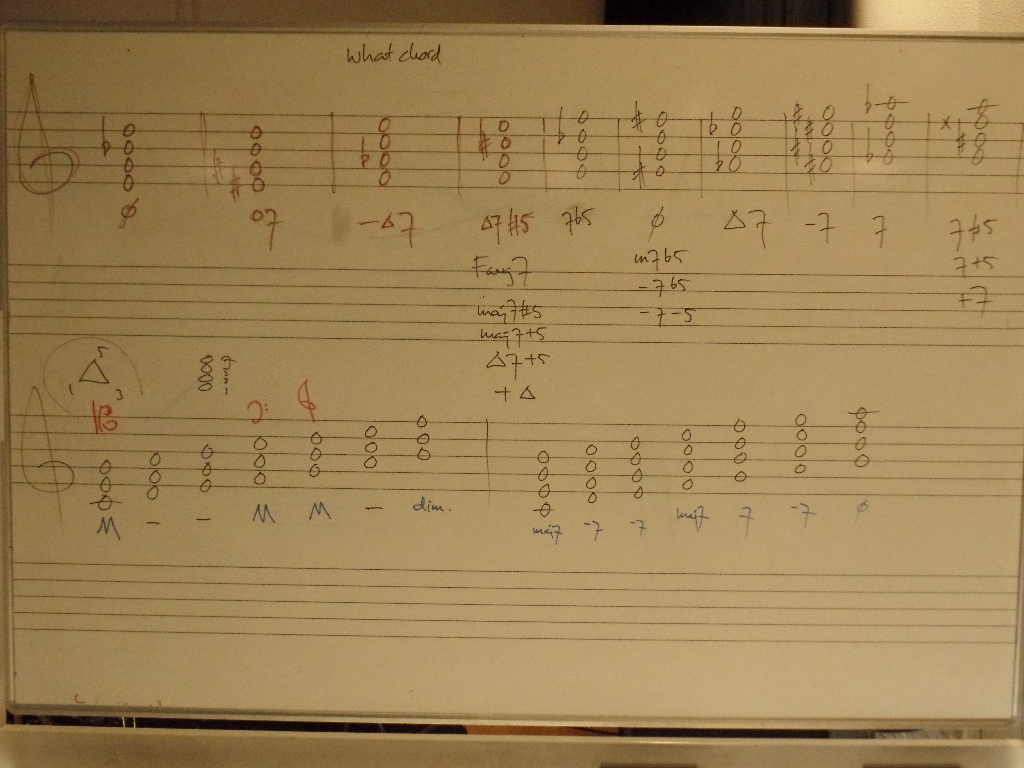 What chord
ø o7 -Δ7 Δ7#5 7b5 ø Δ7 -7 7 7#5
Faug7 m7b5 7+5
-7b5 +7
maj7#5 -7-5
maj7+5
Δ7+5
+Δ
5
1 3
7
5
3
1
M - - M M - dim. maj7 -7 -7 maj7 7 -7 ø